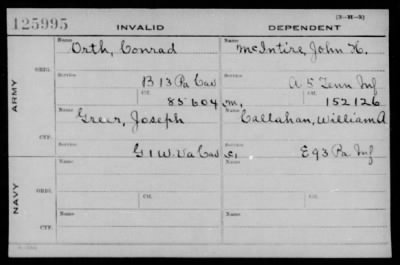 125995 INVALID DEPENDENT [3-H-3]
ARMY
ORIG.
Name Orth, Conrad
Name McIntire, John H.
Service B 13 Pa Cav
Service A 5 Tenn Inf
Ctf. 85604
Ctf. 152126
CTF.
Name Greer, Joseph
Name Callahan, William A
Service G 1 W. Va Cav
Service E 93 Pa Inf
NAVY
ORIG.
Name
Name
Service Ctf.
Service Ctf.
CTF.
Name
Name